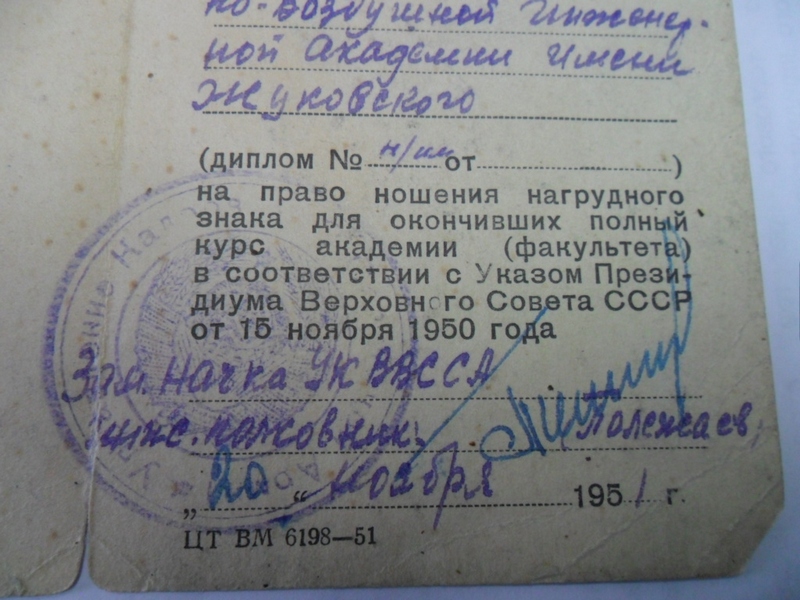 но-воздушной Инженер-
ной Академии имени
Жуковского
(диплом № н/им от )
на право ношения нагрудного
знака для окончивших полный
курс академии (факультета)
в соответствии с Указом Прези-
диума Верховного Совета СССР
от 15 ноября 1950 года
Зам. Нач-ка УК ВВС СА
инж. полковник: Полежаев
„ 20 “ ноября 1951 г.
ЦТ ВМ 6198—51